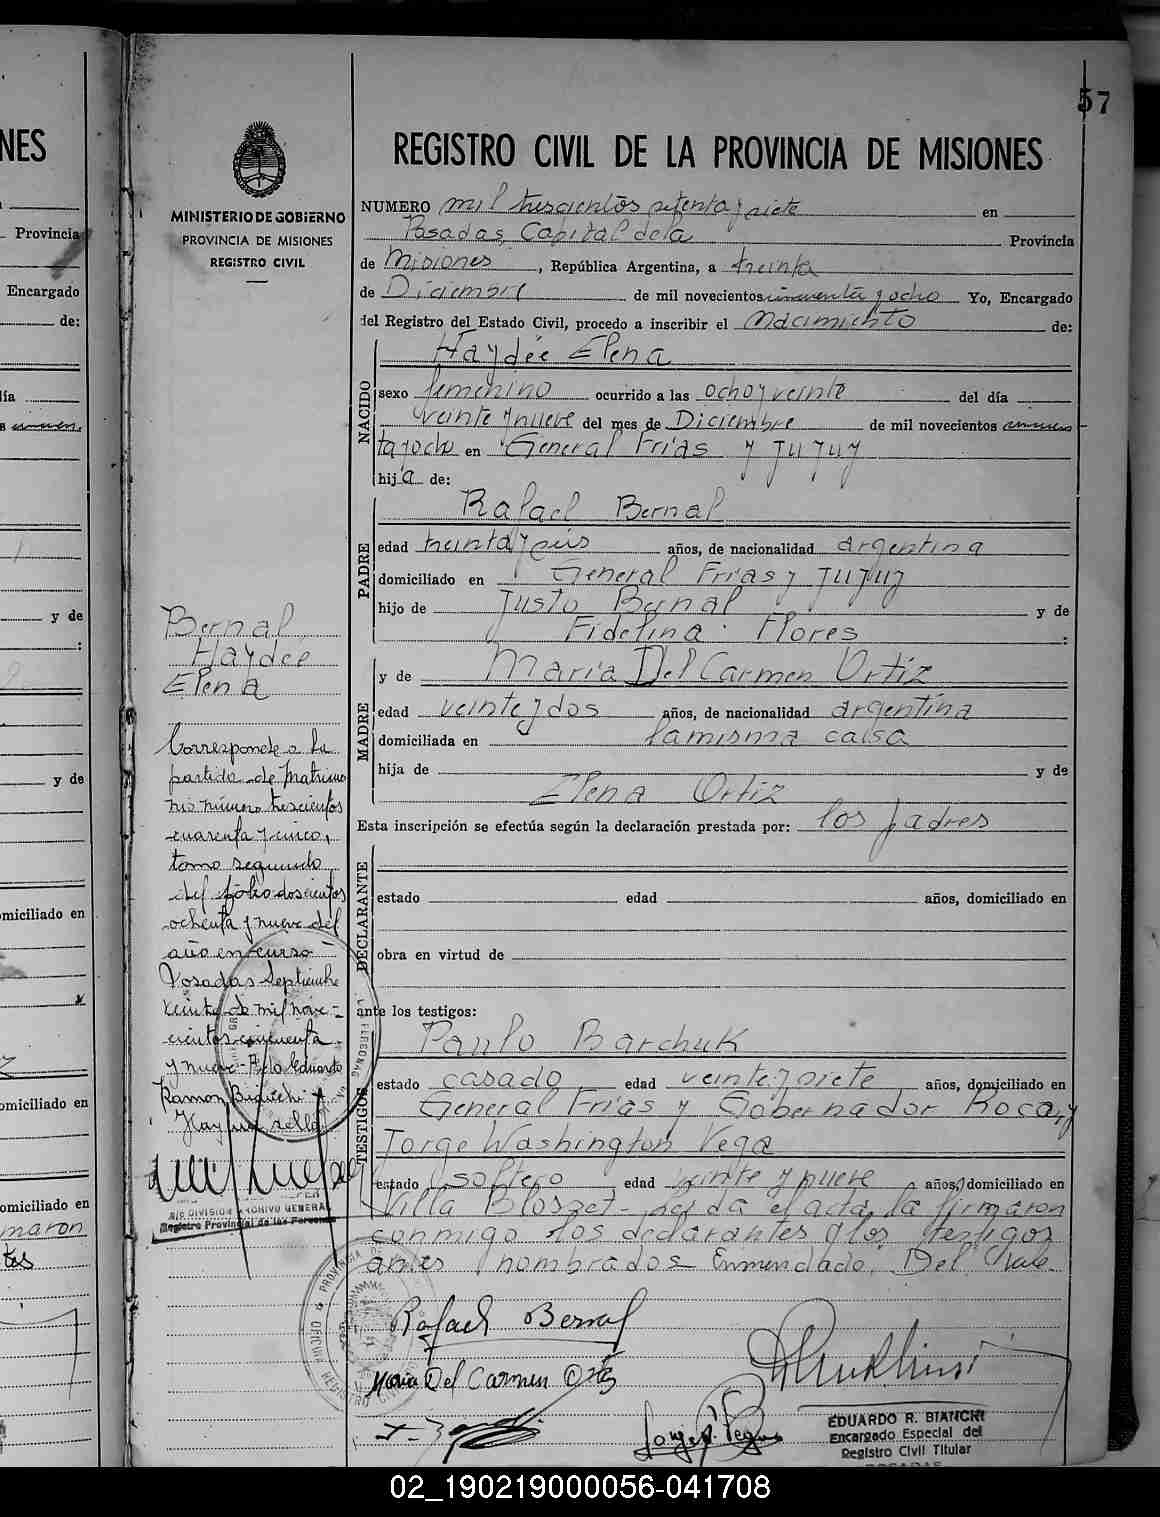 NES
Provincia
Encargado
de:
y de
y de
domiciliado en
domiciliado en
domiciliado en
57
MINISTERIO DE GOBIERNO
PROVINCIA DE MISIONES
REGISTRO CIVIL
REGISTRO CIVIL DE LA PROVINCIA DE MISIONES
NUMERO mil trescientos setenta y siete en
Posadas, Capital de la Provincia
de Misiones, República Argentina, a treinta
de Diciembre de mil novecientos cincuenta y ocho Yo, Encargado
del Registro del Estado Civil, procedo a inscribir el Nacimiento de:
NACIDO
Haydée Elena
sexo femenino ocurrido a las ocho y veinte del día
veinte y nueve del mes de Diciembre de mil novecientos cincuen-
ta y ocho en General Frías y Jujuy
hija de:
PADRE
Rafael Bernal
edad treinta y seis años, de nacionalidad argentina
domiciliado en General Frías y Jujuy
hijo de Justo Bernal y de
Fidelina Flores :
MADRE
y de María Del Carmen Ortiz
edad veinte y dos años, de nacionalidad argentina
domiciliada en la misma casa
hija de y de
Elena Ortiz
Esta inscripción se efectúa según la declaración prestada por: los padres
DECLARANTE
estado edad años, domiciliado en
obra en virtud de
ante los testigos:
TESTIGOS
Paulo Barchuk
estado casado edad veinte y siete años, domiciliado en
General Frías y Gobernador Roca, y
Jorge Washington Vega
estado soltero edad veinte y nueve años, domiciliado en
Villa Blosset - Leída el acta, la firmaron
conmigo los declarantes y los testigos
antes nombrados - Enmendado: Del Vale.
Bernal
Haydée
Elena
Corresponde a la
partida de Matrimo
nio número trescientos
cuarenta y cinco,
tomo segundo
del folio doscientos
ochenta y nueve del
año en curso
Posadas Septiembre
veinte de mil nove-
cientos cincuenta
y nueve - Fdo Eduardo
Ramon Bianchi
Hay un sello
DIVISION ARCHIVO GENERAL
Registro Provincial de las Personas
Rafael Bernal
Maria Del Carmen Ortiz
Jorge W. Vega
EDUARDO R. BIANCHI
Encargado Especial del
Registro Civil Titular
POSADAS
02_190219000056-041708